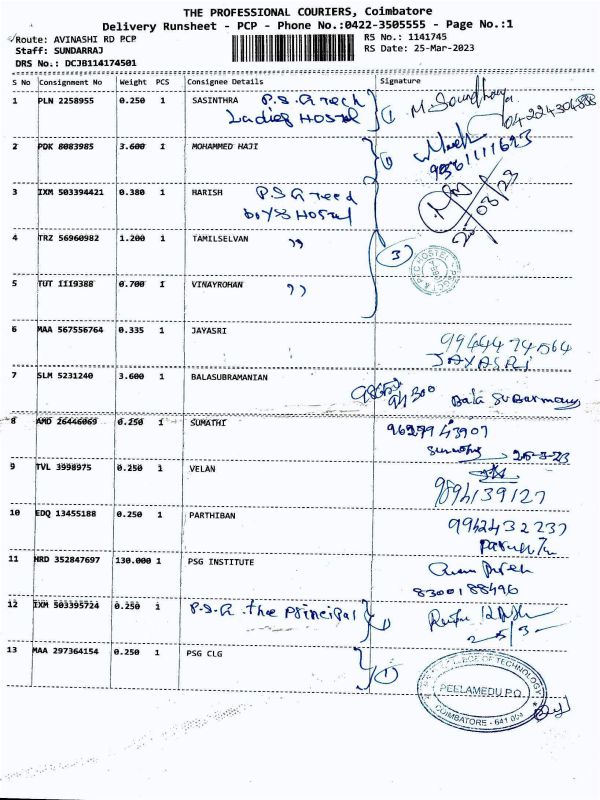 THE PROFESSIONAL COURIERS, Coimbatore
Delivery Runsheet - PCP - Phone No.:0422-3505555 - Page No.:1
Route: AVINASHI RD PCP
Staff: SUNDARRAJ
DRS No.: DCJB114174501
RS No.: 1141745
RS Date: 25-Mar-2023
S No Consignment No Weight PCS Consignee Details Signature
1 PLN 2258955 0.250 1 SASINTHRA P.S.G Tech
Ladies Hostel
2 PDK 8083985 3.600 1 MOHAMMED HAJI
3 IXM 503394421 0.380 1 HARISH
boys Hostel
25/03/23
4 TRZ 56960982 1.200 1 TAMILSELVAN ,,
3
5 TUT 1119388 0.700 1 VINAYROHAN ,,
6 MAA 567556764 0.335 1 JAYASRI
JAYASRI
7 SLM 5231240 3.600 1 BALASUBRAMANIAN
8 AMD 26446069 0.250 1 SUMATHI 9629943907
25-3-23
9 TVL 3998975 0.250 1 VELAN
9894139127
10 EDQ 13455188 0.250 1 PARTHIBAN 9942432237
11 HRD 352847697 130.000 1 PSG INSTITUTE
8300188496
12 IXM 503395724 0.250 1 P.S.G the principal
25/3
13 MAA 297364154 0.250 1 PSG CLG 1
COLLEGE OF TECHNOLOGY
PEELAMEDU P.O.
COIMBATORE - 641 004